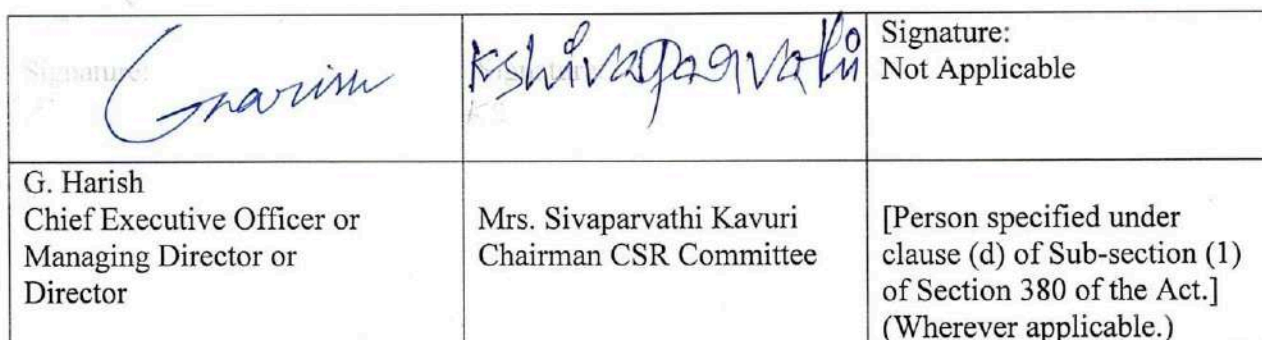 Signature:
Gharish
Signature:
kshivaparvathi
Signature:
Not Applicable
G. Harish
Chief Executive Officer or
Managing Director or
Director
Mrs. Sivaparvathi Kavuri
Chairman CSR Committee
[Person specified under
clause (d) of Sub-section (1)
of Section 380 of the Act.]
(Wherever applicable.)